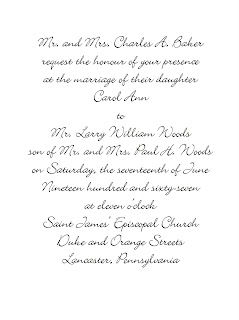 Mr. and Mrs. Charles A. Baker
request the honour of your presence
at the marriage of their daughter
Carol Ann
to
Mr. Larry William Woods
son of Mr. and Mrs. Paul H. Woods
on Saturday, the seventeenth of June
Nineteen hundred and sixty-seven
at eleven o'clock
Saint James' Episcopal Church
Duke and Orange Streets
Lancaster, Pennsylvania